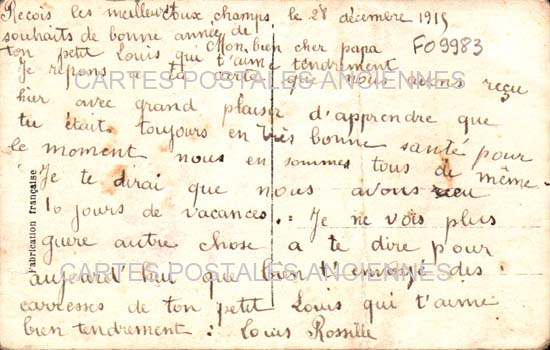 Recois les meilleurs
souhaits de bonne année de
ton petit Louis qui t'aime tendrement
Toux champs, le 28 décembre 1915
Mon bien cher papa
F09983
Je repons a ta carte que nous avons reçu
hier avec grand plaisir d'apprendre que
tu était toujours en très bonne santé pour
le moment nous en sommes tous de même
Je te dirai que nous avons
10 jours de vacances. : Je ne vois plus
guere autre chose a te dire pour
aujourd'hui que bien t'envoyé des
carresses de ton petit Louis qui t'aime
bien tendrement : Louis Rossille
Fabrication française
CARTES POSTALES ANCIENNES
CARTES POSTALES ANCIENNES